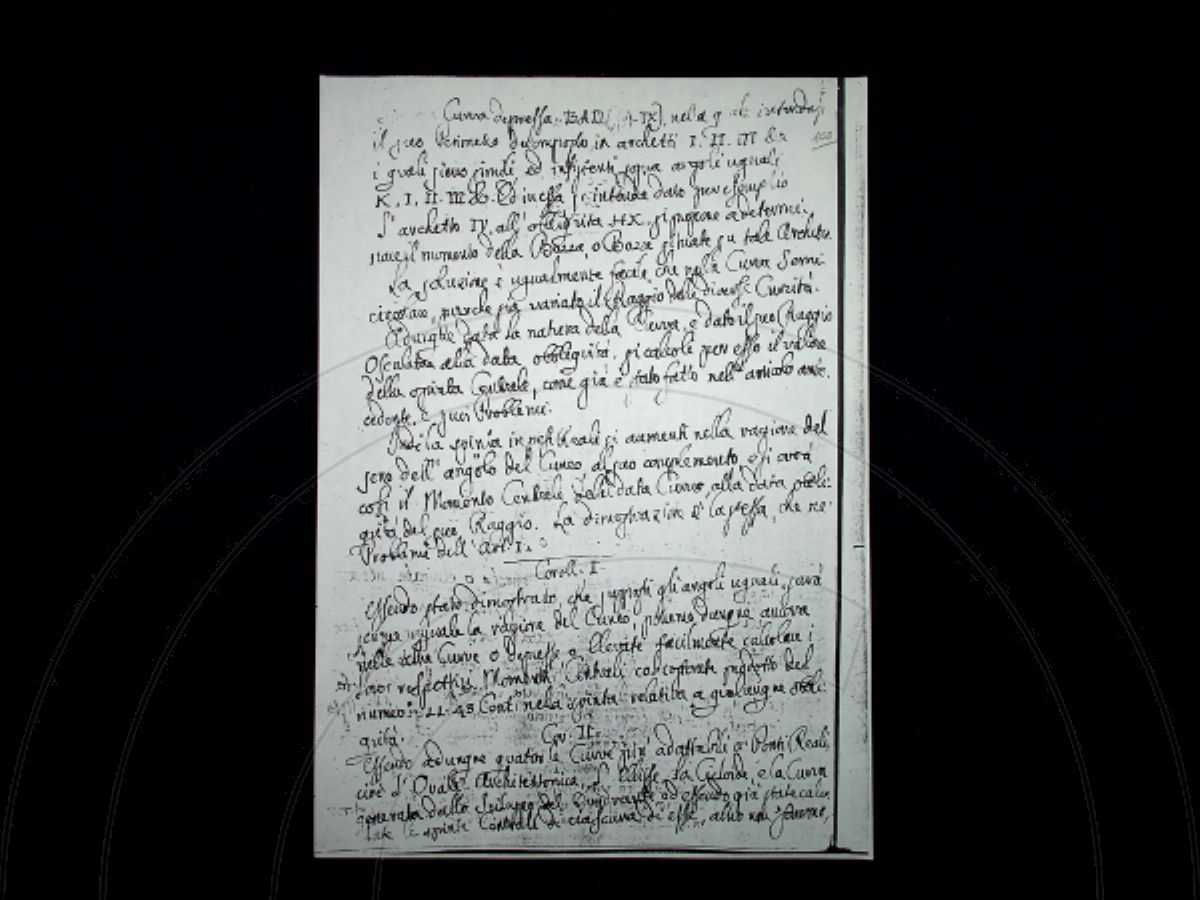 Curva depressa BAD, nella q
il suo Perimetro decomposto in archetti I. II. III &c
i quali sieno simili ed insistenti sopra angoli uguali
K, I, II. III &c. Ed in essa s'intenda dato per essempio
L'archetto IV, all' obbliquita HK, si propone a determi-
nare il momento della
La soluzione è ugualmente facile che nella Curva Semi
circolare, purche sia variato il Raggio delle diverse Curvità.
Adunque data la natura della Curva, e dato il suo Raggio
Osculatore alla data obbliquità, si calcoli per esso il valore
della spinta Centrale, come già è stato fatto nell' articolo ante-
cedente, e suoi Problemi.
Indi la spinta in pesi Reali si aumenti nella ragione del
seno dell' angolo del Cuneo al suo complemento, e si avrà
così il Momento Centrale della data Curva alla data obbli-
quità del suo Raggio. La dimostrazione è la stessa, che ne'
Problemi dell' Art. I.
Coroll. I
Essendo stato dimostrato che supposti gli angoli uguali, sarà
sempre uguale la ragione del Cuneo, potremo dunque ancora
nelle altre Curve o depresse o Elevate facilmente calcolare i
suoi respettivi Momenti Centrali col costante prodotto del
numero 22.93 Conti nella spinta relativa a qualunque obbli-
quità.
Cor. II.
Essendo adunque quattro le Curve più adattabili a' Ponti Reali,
cioè l' Ovale Architettonica, l' Elisse, la Cicloide, e la Curva
generata dallo Sviluppo del Quadrante ed essendo già state calco
late le spinte Centrali di ciascuna di esse, altro non